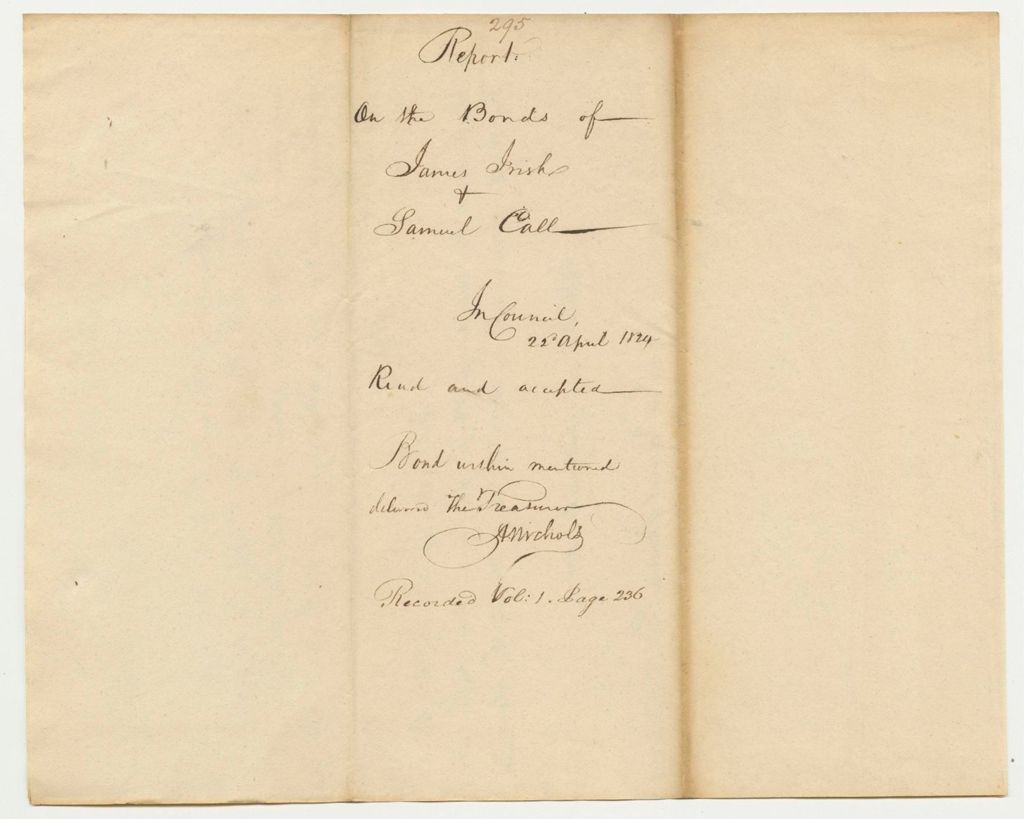 295
Report.
On the Bonds of
James Irish
&
Samuel Call
In Council,
22d April 1824
Read and accepted
Bond within mentioned
delivered the Treasurer
ANichols
Recorded Vol: 1. Page 236